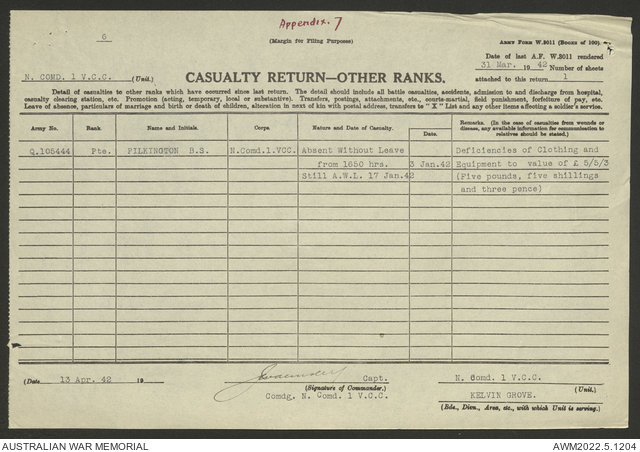 Appendix. 7
G
(Margin for Filing Purposes)
ARMY FORM W.3011 (BOOKS OF 100).
Date of last A.F. W.3011 rendered
31 Mar. 19 42 Number of sheets
attached to this return 1
N. COMD. 1 V.C.C. (Unit.)
CASUALTY RETURN—OTHER RANKS.
Detail of casualties to other ranks which have occurred since last return. The detail should include all battle casualties, accidents, admission to and discharge from hospital,
casualty clearing station, etc. Promotion (acting, temporary, local or substantive). Transfers, postings, attachments, etc., courts-martial, field punishment, forfeiture of pay, etc.
Leave of absence, particulars of marriage and birth or death of children, alteration in next of kin with postal address, transfers to "X" List and any other items affecting a soldier's service.
Army No. Rank. Name and Initials. Corps. Nature and Date of Casualty. Date. Remarks. (In the case of casualties from wounds or
disease, any available information for communication to
relatives should be stated.)
Q.105444 Pte. PILKINGTON B.S. N.Comd.1.VCC. Absent Without Leave Deficiencies of Clothing and
from 1650 hrs. 3 Jan.42 Equipment to value of £ 5/5/3
Still A.W.L. 17 Jan.42 (Five pounds, five shillings
and three pence)
(Date 13 Apr. 42 19 Capt. N. Comd. 1 V.C.C.
(Signature of Commander.) (Unit.)
Comdg. N. Comd. 1 V.C.C. KELVIN GROVE.
(Bde., Divn., Area, etc., with which Unit is serving.)
AUSTRALIAN WAR MEMORIAL AWM2022.5.1204